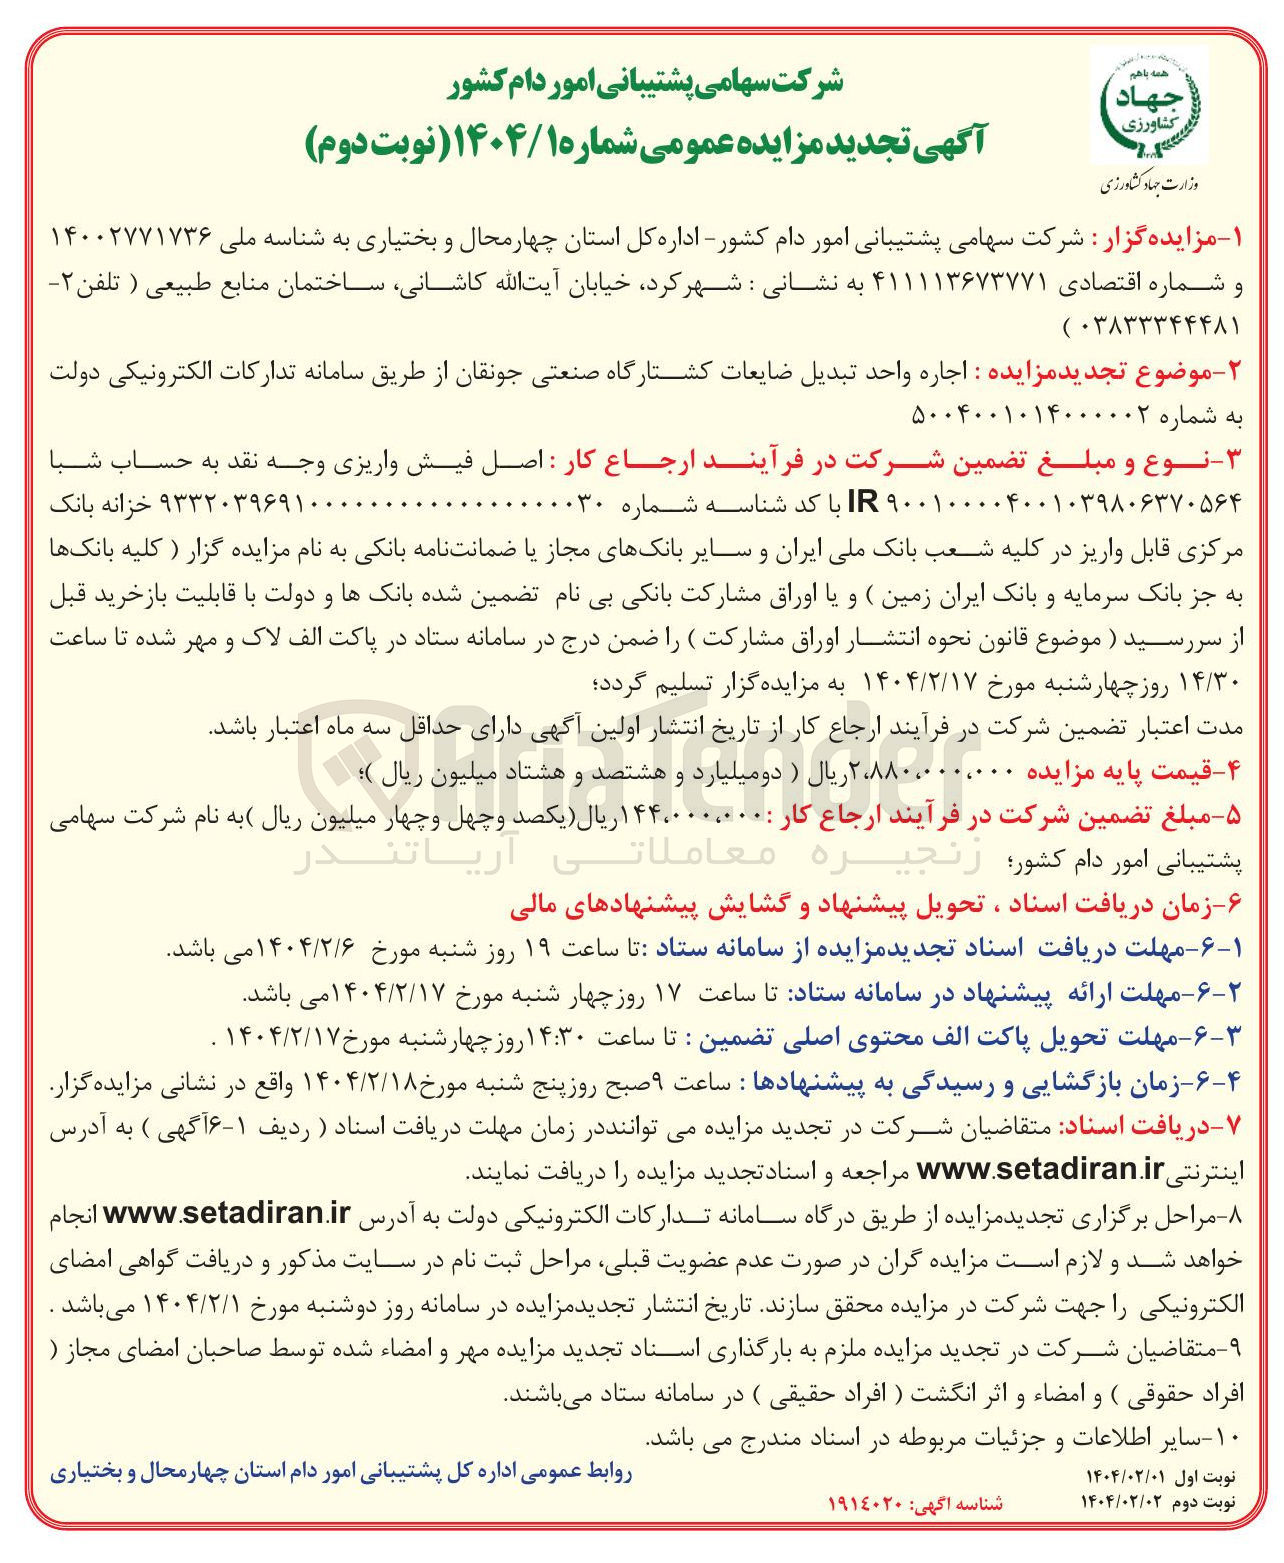 شرکت سهامی پشتیبانی امور دام کشور
آگهی تجدید مزایده عمومی شماره ۱۴۰۴/۱ (نوبت دوم)
همه باهم
جهاد
کشاورزی
وزارت جهاد کشاورزی
۱-مزایده‌گزار : شرکت سهامی پشتیبانی امور دام کشور- اداره‌کل استان چهارمحال و بختیاری به شناسه ملی ۱۴۰۰۲۷۷۱۷۳۶
و شماره اقتصادی ۴۱۱۱۱۳۶۷۳۷۷۱ به نشانی : شهرکرد، خیابان آیت‌الله کاشانی، ساختمان منابع طبیعی ( تلفن۲-
۰۳۸۳۳۳۴۴۴۸۱ )
۲-موضوع تجدیدمزایده : اجاره واحد تبدیل ضایعات کشتارگاه صنعتی جونقان از طریق سامانه تدارکات الکترونیکی دولت
به شماره ۵۰۰۴۰۰۱۰۱۴۰۰۰۰۰۲
۳-نوع و مبلغ تضمین شرکت در فرآیند ارجاع کار : اصل فیش واریزی وجه نقد به حساب شبا
IR ۹۰۰۱۰۰۰۰۴۰۰۱۰۳۹۸۰۶۳۷۰۵۶۴ با کد شناسه شماره ۹۳۳۲۰۳۹۶۹۱۰۰۰۰۰۰۰۰۰۰۰۰۰۰۰۰۰۰۳۰ خزانه بانک
مرکزی قابل واریز در کلیه شعب بانک ملی ایران و سایر بانک‌های مجاز یا ضمانت‌نامه بانکی به نام مزایده گزار ( کلیه بانک‌ها
به جز بانک سرمایه و بانک ایران زمین ) و یا اوراق مشارکت بانکی بی نام تضمین شده بانک ها و دولت با قابلیت بازخرید قبل
از سررسید ( موضوع قانون نحوه انتشار اوراق مشارکت ) را ضمن درج در سامانه ستاد در پاکت الف لاک و مهر شده تا ساعت
۱۴/۳۰ روزچهارشنبه مورخ ۱۴۰۴/۲/۱۷ به مزایده‌گزار تسلیم گردد؛
مدت اعتبار تضمین شرکت در فرآیند ارجاع کار از تاریخ انتشار اولین آگهی دارای حداقل سه ماه اعتبار باشد.
AriaTender
۴-قیمت پایه مزایده ۲،۸۸۰،۰۰۰،۰۰۰ریال ( دومیلیارد و هشتصد و هشتاد میلیون ریال )؛
۵-مبلغ تضمین شرکت در فرآیند ارجاع کار :۱۴۴،۰۰۰،۰۰۰ریال(یکصد وچهل وچهار میلیون ریال )به نام شرکت سهامی
زنجیره معاملاتی آریاتندر
پشتیبانی امور دام کشور؛
۶-زمان دریافت اسناد ، تحویل پیشنهاد و گشایش پیشنهادهای مالی
۶-۱-مهلت دریافت اسناد تجدیدمزایده از سامانه ستاد :تا ساعت ۱۹ روز شنبه مورخ ۱۴۰۴/۲/۶می باشد.
۶-۲-مهلت ارائه پیشنهاد در سامانه ستاد: تا ساعت ۱۷ روزچهار شنبه مورخ ۱۴۰۴/۲/۱۷می باشد.
۶-۳-مهلت تحویل پاکت الف محتوی اصلی تضمین : تا ساعت ۱۴:۳۰روزچهارشنبه مورخ۱۴۰۴/۲/۱۷ .
۶-۴-زمان بازگشایی و رسیدگی به پیشنهادها : ساعت ۹صبح روزپنج شنبه مورخ۱۴۰۴/۲/۱۸ واقع در نشانی مزایده‌گزار.
۷-دریافت اسناد: متقاضیان شرکت در تجدید مزایده می توانددر زمان مهلت دریافت اسناد ( ردیف ۱-۶آگهی ) به آدرس
اینترنتیwww.setadiran.ir مراجعه و اسنادتجدید مزایده را دریافت نمایند.
۸-مراحل برگزاری تجدیدمزایده از طریق درگاه سامانه تدارکات الکترونیکی دولت به آدرس www.setadiran.ir انجام
خواهد شد و لازم است مزایده گران در صورت عدم عضویت قبلی، مراحل ثبت نام در سایت مذکور و دریافت گواهی امضای
الکترونیکی را جهت شرکت در مزایده محقق سازند. تاریخ انتشار تجدیدمزایده در سامانه روز دوشنبه مورخ ۱۴۰۴/۲/۱ می‌باشد .
۹-متقاضیان شرکت در تجدید مزایده ملزم به بارگذاری اسناد تجدید مزایده مهر و امضاء شده توسط صاحبان امضای مجاز (
افراد حقوقی ) و امضاء و اثر انگشت ( افراد حقیقی ) در سامانه ستاد می‌باشند.
۱۰-سایر اطلاعات و جزئیات مربوطه در اسناد مندرج می باشد.
نوبت اول ۱۴۰۴/۰۲/۰۱
نوبت دوم ۱۴۰۴/۰۲/۰۲
روابط عمومی اداره کل پشتیبانی امور دام استان چهارمحال و بختیاری
شناسه اگهی: ۱۹۱۴۰۲۰